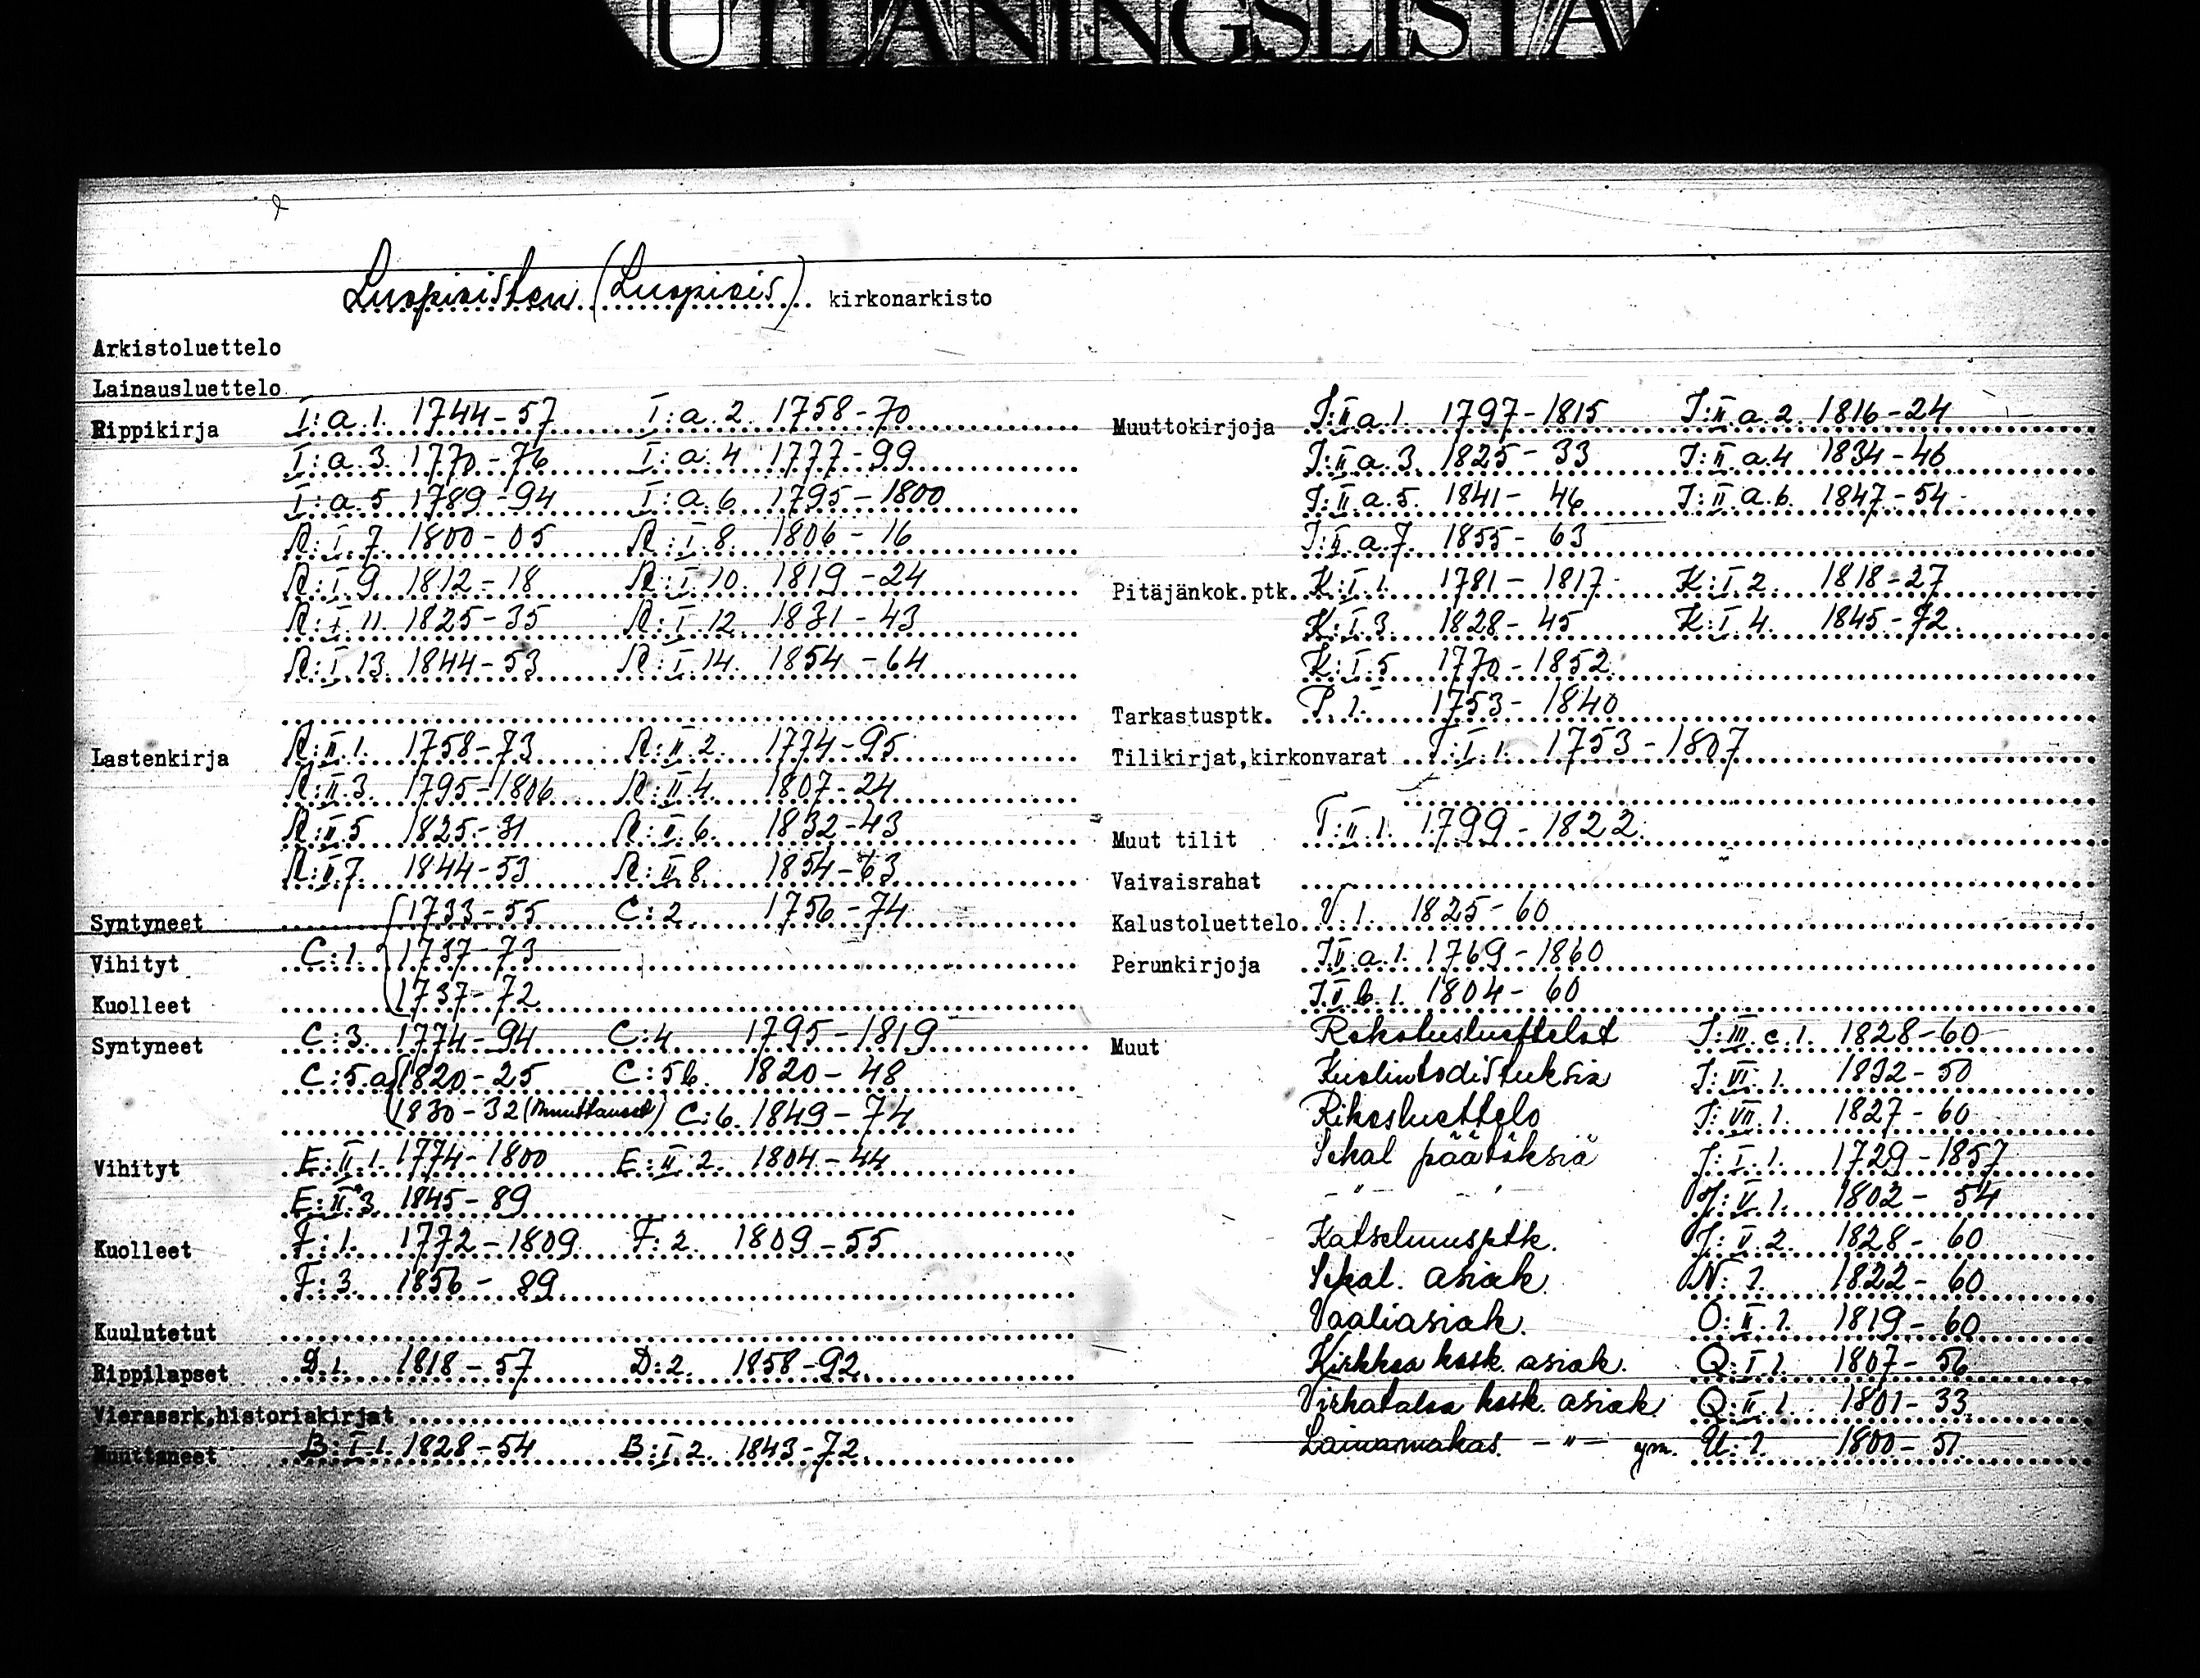 UTLÅNINGSLISTA
Luopioisten (Luopiois) kirkonarkisto
Arkistoluettelo
Lainausluettelo
Rippikirja I:a.1. 1744-57 I:a.2. 1758-70
I:a.3. 1770-76 I:a.4 1777-99
I:a.5 1789-94 I:a.6. 1795-1800
R:I.7. 1800-05 R:I.8. 1806-16
R:I.9. 1812-18 R:I.10. 1819-24
R:I.11. 1825-35 R:I.12. 1831-43
R:I.13. 1844-53 R:I.14. 1854-64
Lastenkirja R:II.1. 1758-73 R:II.2. 1774-95
R:II.3. 1795-1806 R:II.4. 1807-24
R:II.5 1825-31 R:II.6. 1832-43
R:II.7. 1844-53 R:II.8. 1854-63
Syntyneet 1733-55 C:2. 1756-74
Vihityt C:1. 1737-73
Kuolleet 1737-72
Syntyneet C:3. 1774-94 C:4 1795-1819
C:5.a 1820-25 C:5b. 1820-48
1830-32 (muuttaneet) C:6. 1849-74
Vihityt E:II.1. 1774-1800 E:II.2. 1804-44
E:II.3. 1845-89
Kuolleet F:1. 1772-1809 F:2. 1809-55
F:3. 1856-89
Kuulutetut
Rippilapset D.1. 1818-57 D:2. 1858-92
Vierasark,historiakirjat
Muuttaneet B:I.1. 1828-54 B:I.2. 1843-72
Muuttokirjoja J:II.a.1. 1797-1815 J:II.a.2. 1816-24
J:II.a.3. 1825-33 J:II.a.4 1834-46
J:II.a.5. 1841-46 J:II.a.6. 1847-54
J:II.a.7. 1855-63
Pitäjänkok.ptk. K:I.1. 1781-1817 K:I.2. 1818-27
K:I.3. 1828-45 K:I.4. 1845-72
K:I.5 1770-1852
Tarkastusptk. P.1. 1753-1840
Tilikirjat,kirkonvarat T:I.1. 1753-1807
Muut tilit T:II.1. 1799-1822.
Vaivaisrahat
Kalustoluettelo V.1. 1825-60
Perunkirjoja J.II.a.1. 1769-1860
J.II.b.1. 1804-60
Muut Rokotusluettelot J:III.c.1. 1828-60
Kuolintodistuksia J:VI.1. 1832-50
Rikosluettelo J:VII.1. 1827-60
Sekal päätöksiä J:I.1. 1729-1857
-"- J:V.1. 1802-54
Katselmusptk. J:V.2. 1828-60
Sekal. asiak. N:1. 1822-60
Vaaliasiak. O:II.1. 1819-60
Kirkkoa kosk. asiak. Q:I.1. 1807-56
Virkataloa kosk. asiak. Q:II.1. 1801-33
Lainamakas. -"- ym. U:1. 1800-51